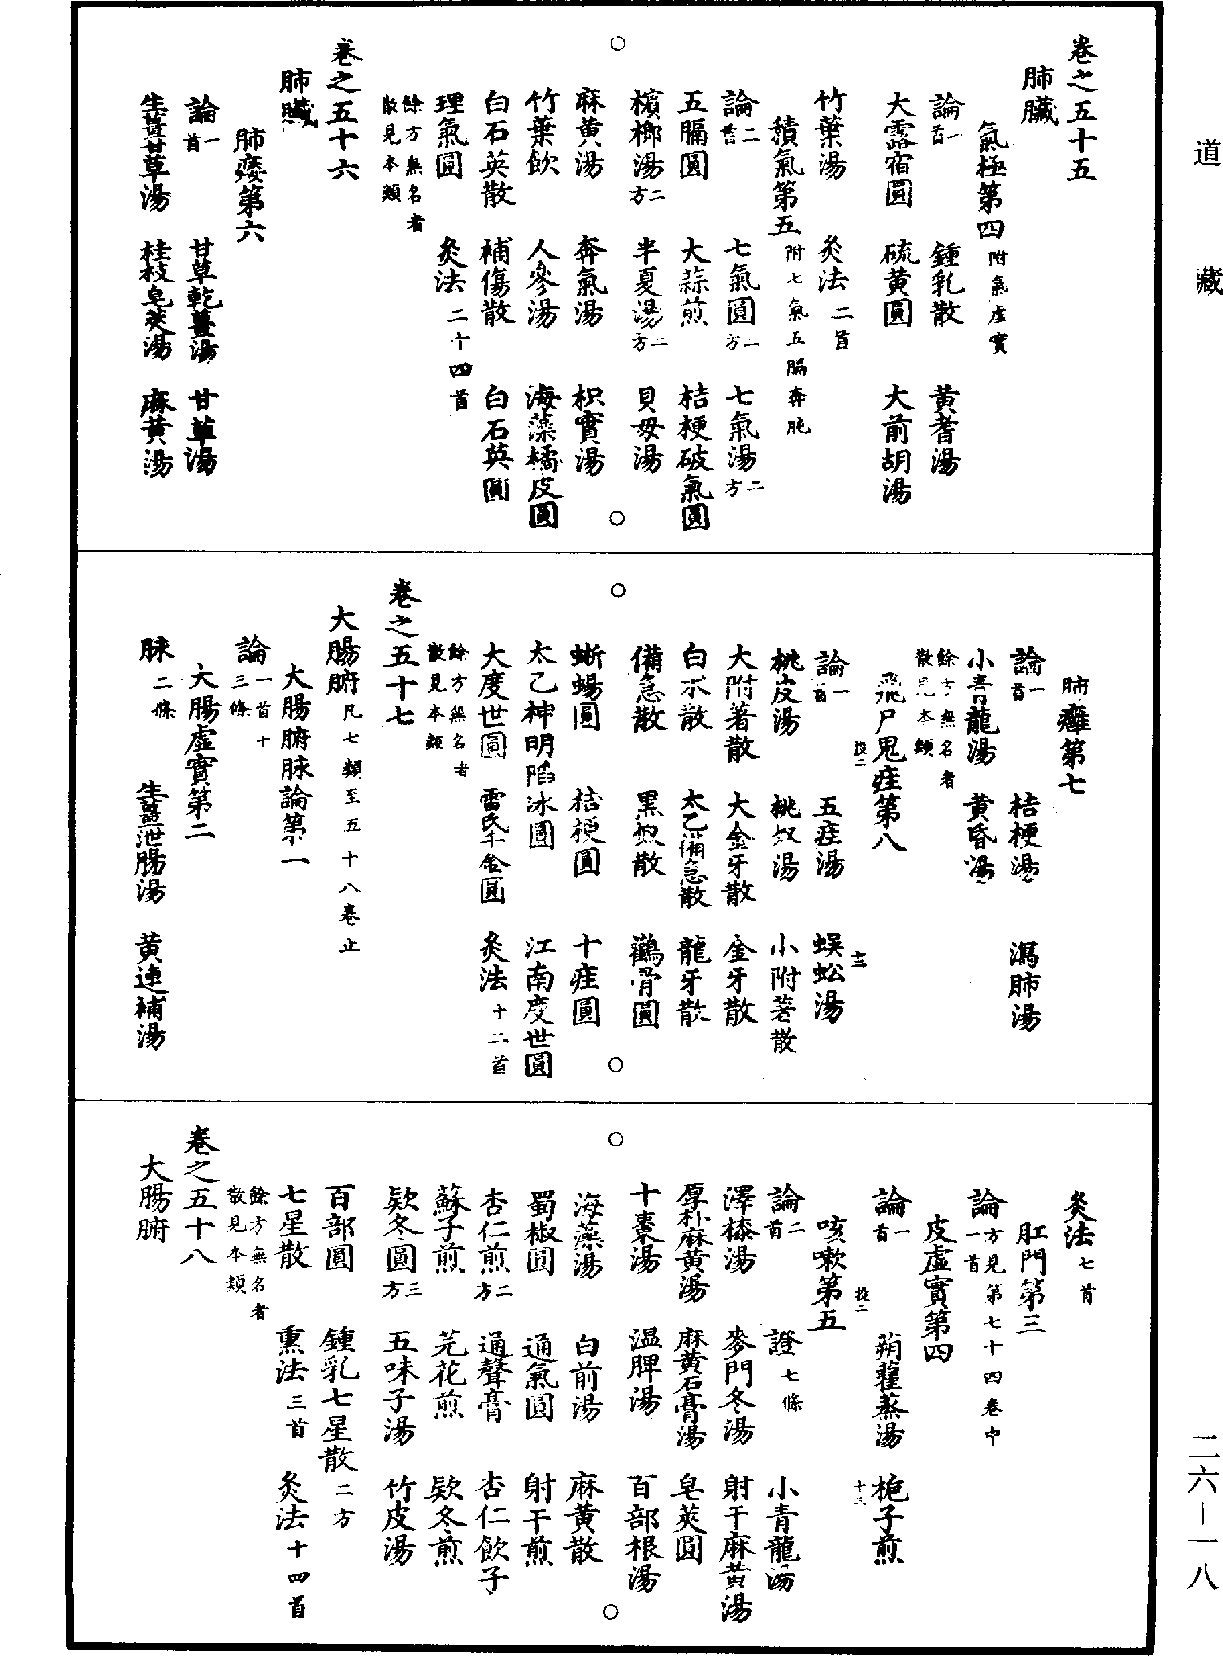 道藏
卷之五十五
肺臟
氣極第四附氣虛實
論一首 鍾乳散 黃耆湯
大露宿圓 硫黃圓 大前胡湯
竹葉湯 灸法二首
積氣第五附七氣五膈奔肫
論二首 七氣圓一方 七氣湯二方
五膈圓 大蒜煎 桔梗破氣圓
檳榔湯二方 半夏湯二方 貝母湯
麻黃湯 奔氣湯 枳實湯
竹葉飲 人參湯 海藻橘皮圓
白石英散 補傷散 白石英圓
理氣圓 灸法二十四首
餘方無名者散見本類
卷之五十六
肺臟
肺痿第六
論一首 甘草乾薑湯 甘草湯
生薑甘草湯 桂枝皂莢湯 麻黃湯
肺癰第七
論一首 桔梗湯 瀉肺湯
小青龍湯 黃昏湯
餘方無名者散見本類
飛尸鬼疰第八
投二
論一首 五疰湯 蜈蚣湯
十三
桃皮湯 桃奴湯 小附著散
大附著散 大金牙散 金牙散
白朮散 太乙備急散 龍牙散
備急散 黑奴散 鸛骨圓
蜥蜴圓 桔梗圓 十疰圓
太乙神明陷冰圓 江南度世圓
大度世圓 雷氏千金圓 灸法十二首
餘方無名者散見本類
卷之五十七
大腸腑凡七類至五十八卷止
大腸腑脉論第一
論一首十三條
大腸虛實第二
脉二條 生薑泄腸湯 黃連補湯
灸法七首
肛門第三
論一首方見第七十四卷中
皮虛實第四
論一首 蒴藋蒸湯 梔子煎
投二
十三
咳嗽第五
論二首 證七條 小青龍湯
澤漆湯 麥門冬湯 射干麻黃湯
厚朴麻黃湯 麻黃石膏湯 皂莢圓
十棗湯 溫脾湯 百部根湯
海藻湯 白前湯 麻黃散
蜀椒圓 通氣圓 射干煎
杏仁煎二方 通聲膏 杏仁飲子
蘇子煎 芫花煎 款冬煎
款冬圓三方 五味子湯 竹皮湯
百部圓 鍾乳七星散二方
七星散 熏法三首 灸法十四首
餘方無名者散見本類
卷之五十八
大腸腑
二六—一八